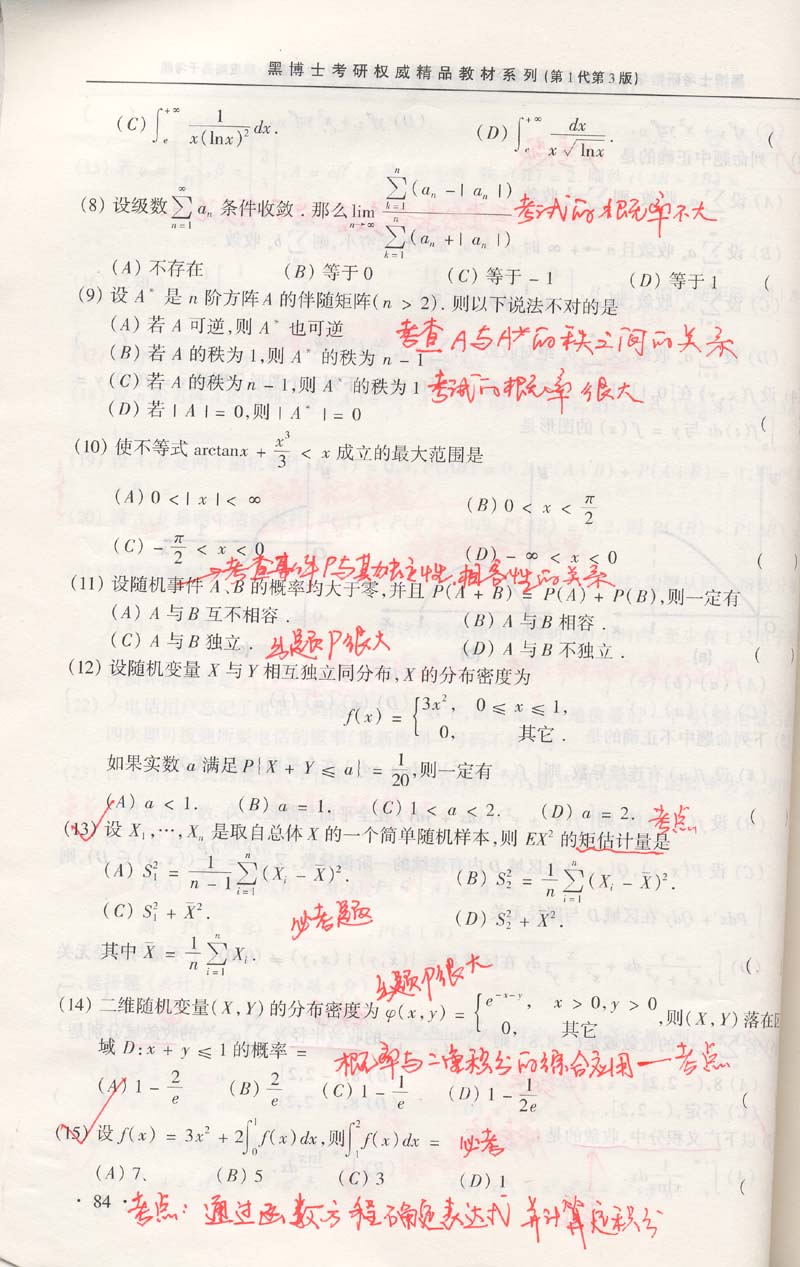 黑博士考研权威精品教材系列(第1代第3版)
(C) ∫_e^{+∞} 1/(x(lnx)²) dx. (D) ∫_e^{+∞} dx/(x√lnx). (
(8) 设级数 ∑_{n=1}^{∞} aₙ 条件收敛．那么 lim_{n→∞} ∑_{k=1}^{n}(aₙ - | aₙ |) / ∑_{k=1}^{n}(aₙ + | aₙ |) 考试的概率不大
(A) 不存在 (B) 等于 0 (C) 等于 - 1 (D) 等于 1 (
(9) 设 A* 是 n 阶方阵 A 的伴随矩阵( n > 2)．则以下说法不对的是
(A) 若 A 可逆,则 A* 也可逆 考查A与A*的秩之间的关系
(B) 若 A 的秩为 1,则 A* 的秩为 n - 1
(C) 若 A 的秩为 n - 1,则 A* 的秩为 1 考试的概率很大
(D) 若 | A | = 0,则 | A* | = 0 (
(10) 使不等式 arctanx + x³/3 < x 成立的最大范围是
(A) 0 < | x | < ∞ (B) 0 < x < π/2
(C) - π/2 < x < 0 (D) - ∞ < x < 0 (
→考查事件P与其独立性,相容性的关系
(11) 设随机事件 A、B 的概率均大于零,并且 P(A + B) = P(A) + P(B),则一定有
(A) A 与 B 互不相容． (B) A 与 B 相容．
(C) A 与 B 独立． 主题P很大 (D) A 与 B 不独立． (
(12) 设随机变量 X 与 Y 相互独立同分布, X 的分布密度为
f(x) = { 3x², 0 ≤ x ≤ 1,
0, 其它．
如果实数 a 满足 P{X + Y ≤ a} = 1/20,则一定有
(A) a < 1. (B) a = 1. (C) 1 < a < 2. (D) a = 2. 考点 (
(13) 设 X₁,⋯,Xₙ 是取自总体 X 的一个简单随机样本,则 EX² 的矩估计量是
(A) S₁² = 1/(n - 1) ∑_{i=1}^{n} (Xᵢ - X̄)². (B) S₂² = 1/n ∑_{i=1}^{n} (Xᵢ - X̄)².
(C) S₁² + X̄². 必考题 (D) S₂² + X̄².
其中 X̄ = 1/n ∑_{i=1}^{n} Xᵢ. (
主题P很大
(14) 二维随机变量(X, Y) 的分布密度为 φ(x,y) = { e^{-x-y}, x > 0, y > 0
0, 其它 ,则(X, Y) 落在区
域 D: x + y ≤ 1 的概率 = 概率与二重积分的综合应用一考点
(A) 1 - 2/e (B) 2/e (C) 1 - 1/e (D) 1 - 1/2e (
(15) 设 f(x) = 3x² + 2∫_0^1 f(x)dx,则∫_1^2 f(x)dx = 必考
(A) 7、 (B) 5 (C) 3 (D) 1 (
· 84 · 考点：通过函数方程确定表达式并计算定积分